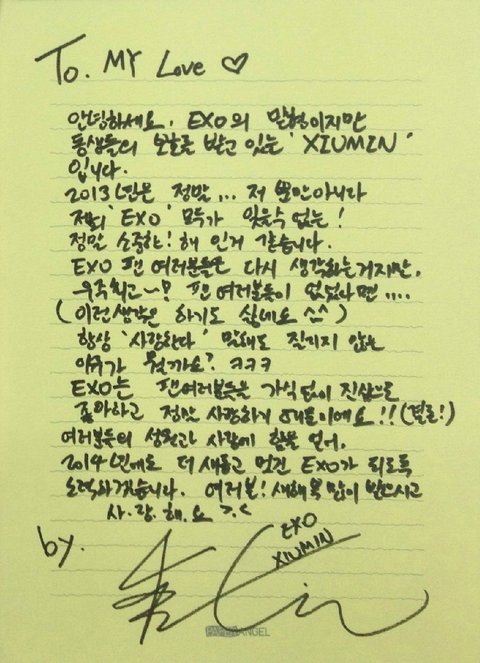 To. MY Love ♡
안녕하세요, EXO의 맏형이지만
동생들의 보호를 받고 있는 'XIUMIN'
입니다.
2013년은 정말... 저 뿐만아니라
저희 'EXO' 모두가 잊을수 없는!
정말 소중한! 해 인거 같습니다.
EXO 팬 여러분들은 다시 생각하는거지만,
우주최고~!! 팬 여러분들이 없었다면....
(이런생각은 하기도 싫네요 ^^)
항상 '사랑한다' 말해도 질리지 않는
이유가 뭘까요? ㅋㅋㅋ
EXO는 팬여러분들은 가식없이 진심으로
좋아하고 정말 사랑하기 때문이에요!! (결론!)
여러분들의 성원과 사랑에 힘을 얻어,
2014년에도 더 새롭고 멋진 EXO가 되도록
노력하겠습니다. 여러분! 새해복 많이 받으시고
사.랑.해.요 >.<
by.
EXO
XIUMIN
PAPER ANGEL